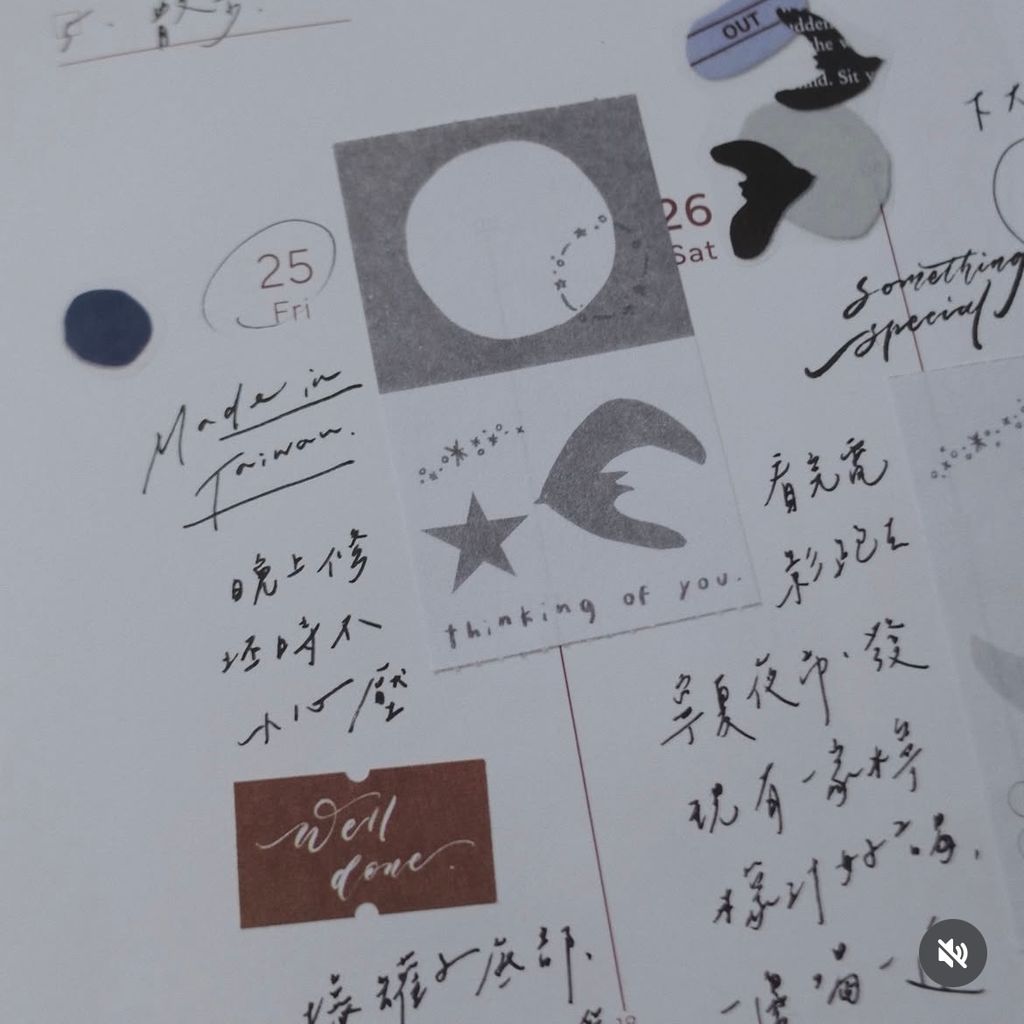 25
Fri
Made in
Taiwan.
晚上修
坯時不
小心壓
well
done.
罐子底部、
thinking of you.
OUT
he w
nd. Sit
26
Sat
something
special
看完電
影跑去
寧夏夜市,發
現有一家檸
檬汁好好喝,
一邊喝一邊
下大